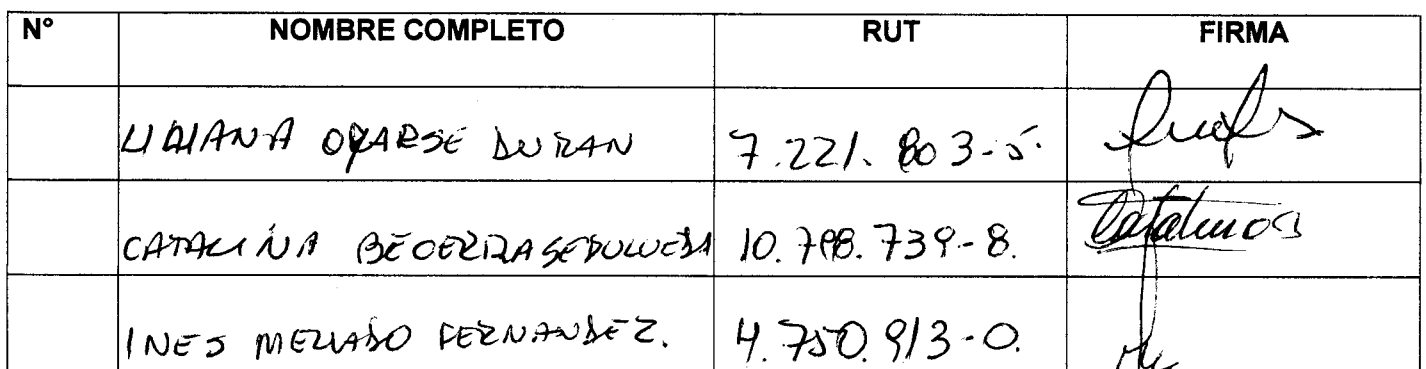 N° NOMBRE COMPLETO RUT FIRMA
LILIANA OYARSE DURAN 7.221.803-5.
CATALINA BECERRA SEPULVEDA 10.798.739-8. Catalina
INES MELLADO FERNANDEZ. 4.750.913-0.